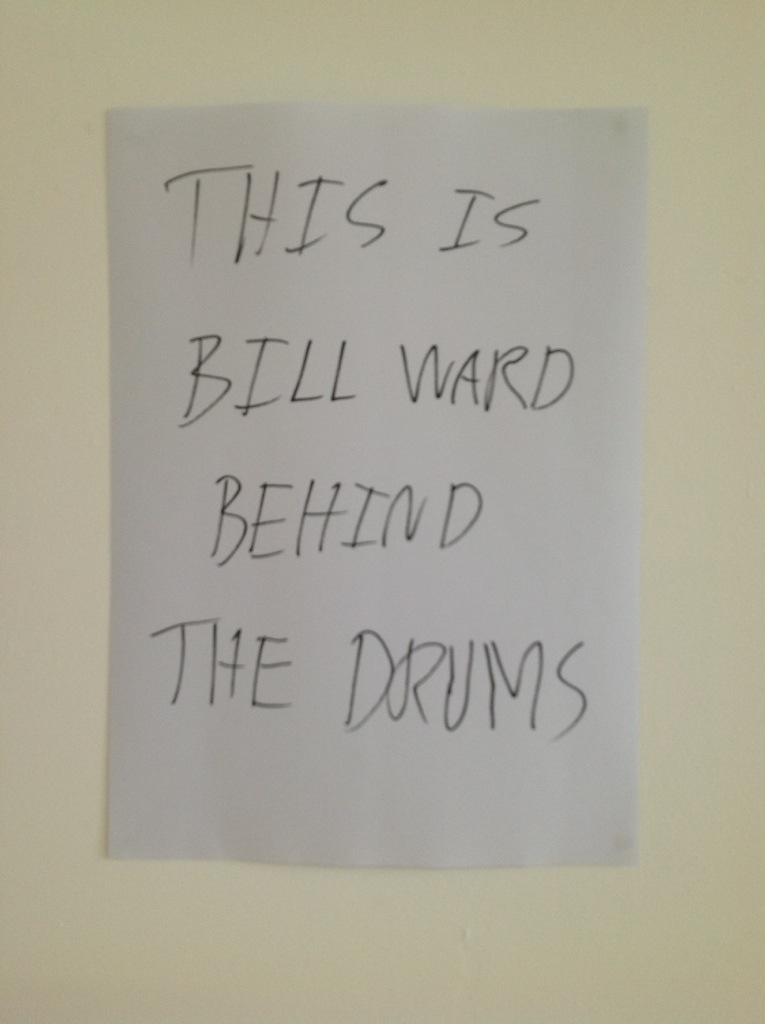 THIS IS
BILL WARD
BEHIND
THE DRUMS